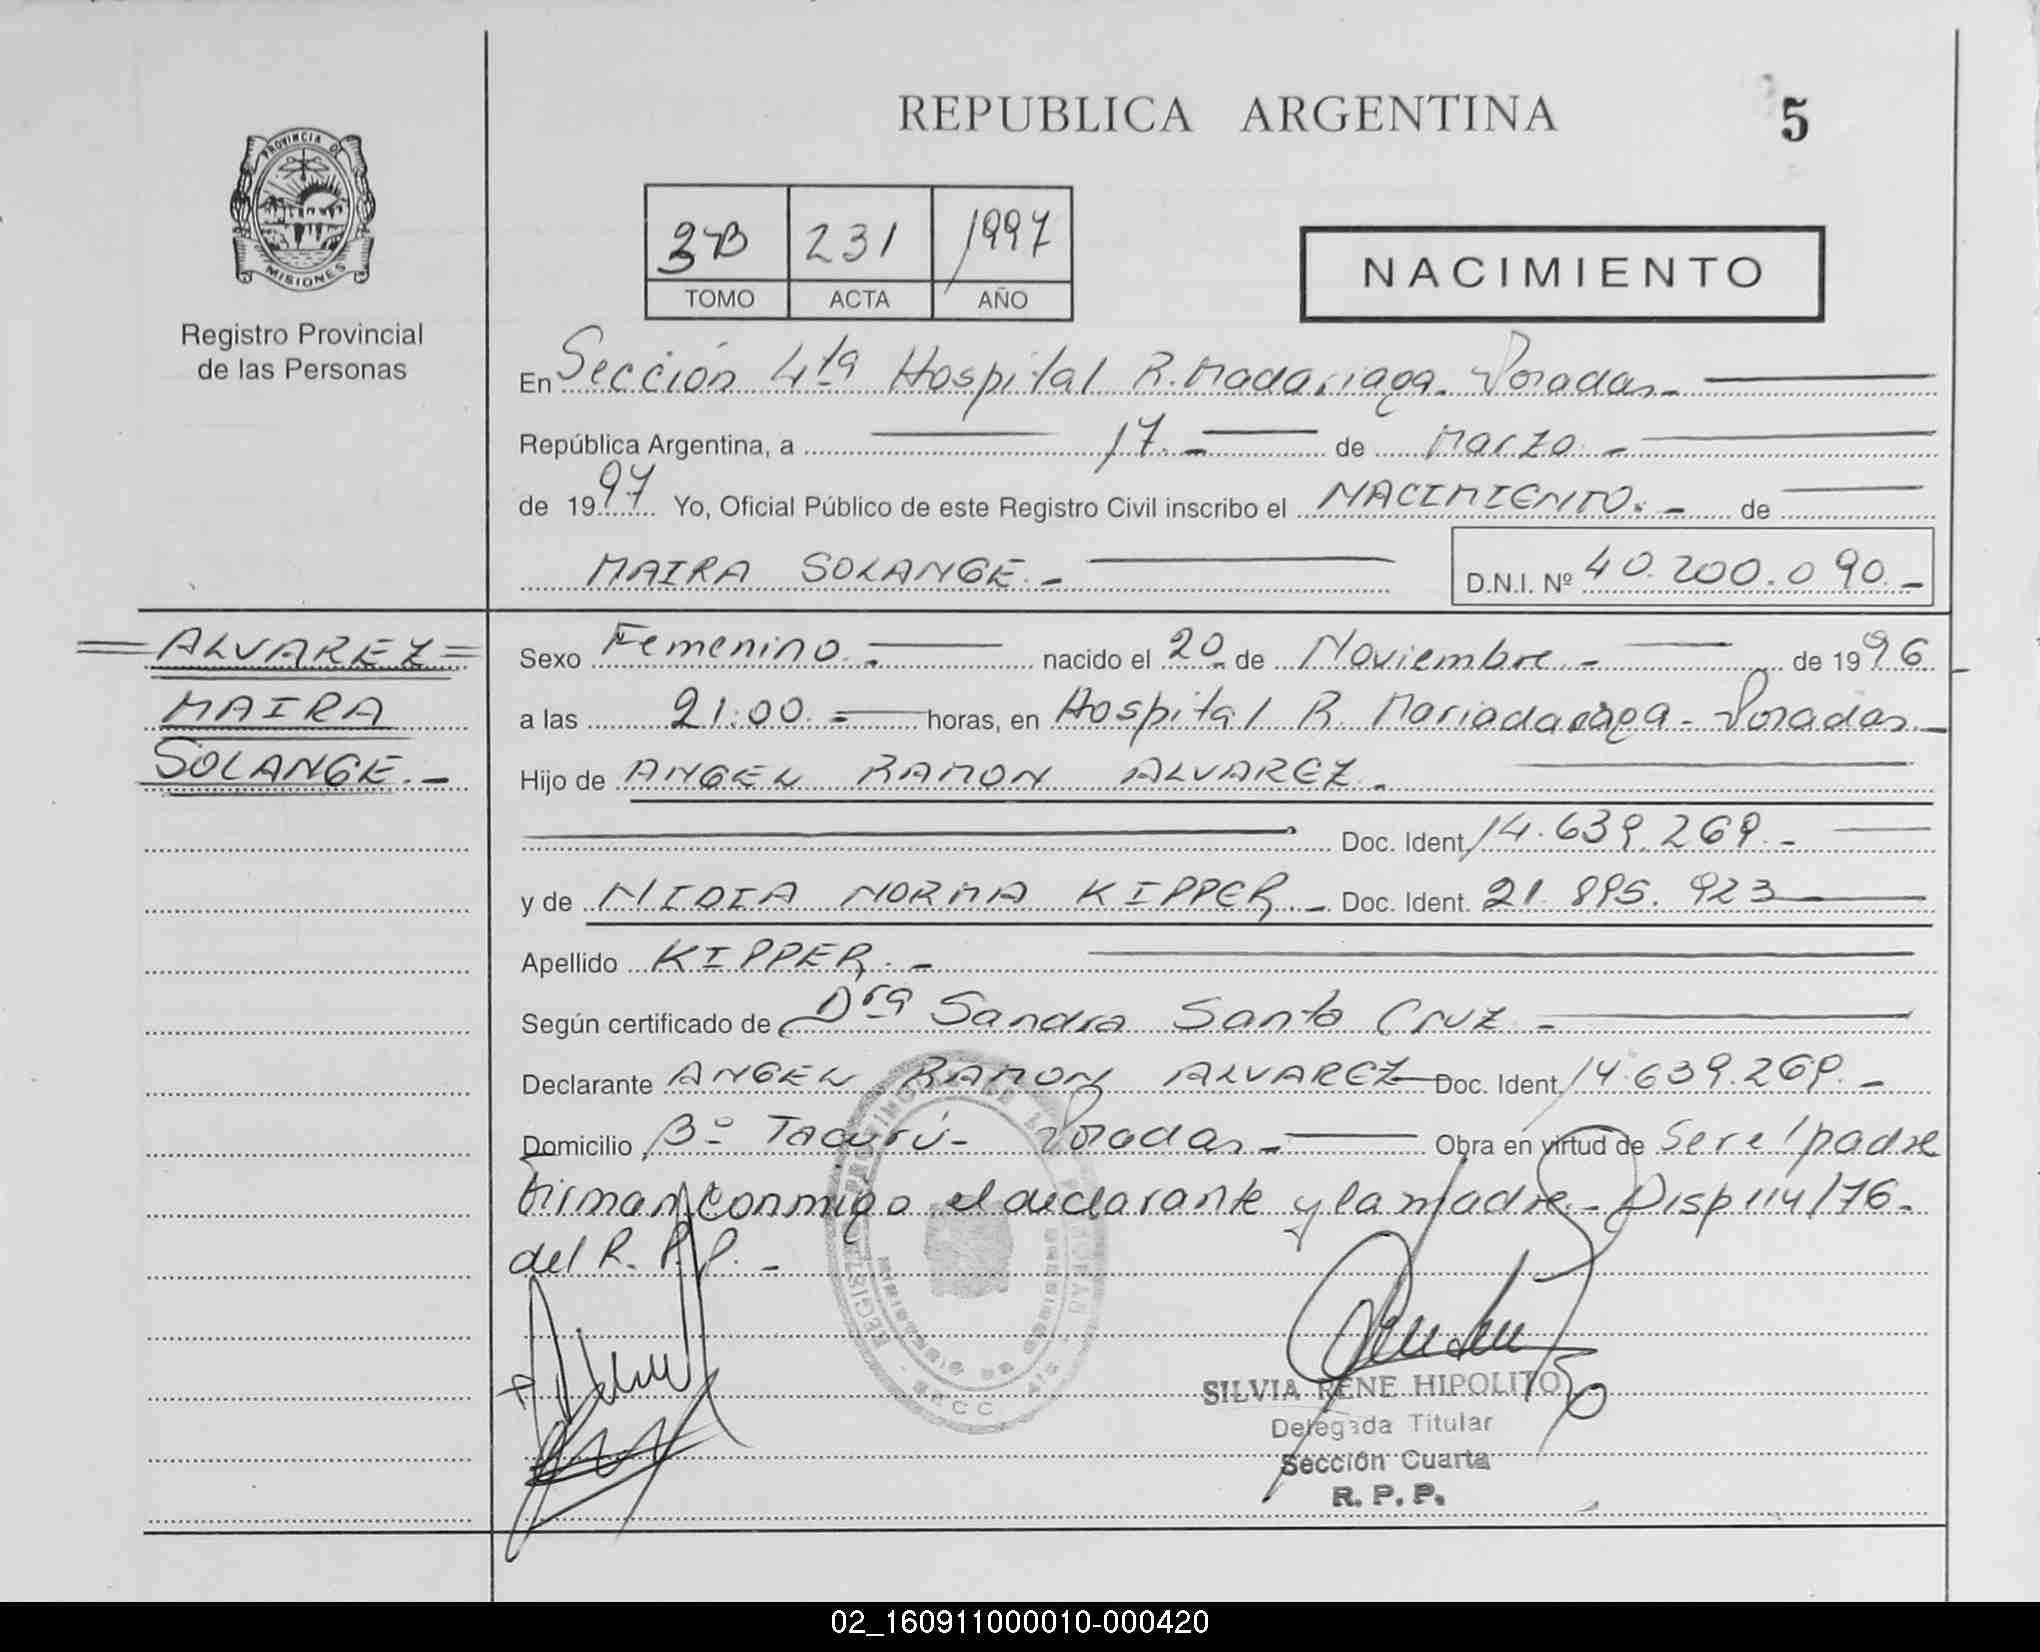 REPUBLICA ARGENTINA
5
PROVINCIA DE
MISIONES
Registro Provincial
de las Personas
3-B 231 1997
TOMO ACTA AÑO
NACIMIENTO
En Sección 4ta Hospital R. Madariaga - Posadas -
República Argentina, a 17.- de Marzo -
de 1997 Yo, Oficial Público de este Registro Civil inscribo el NACIMIENTO. - de
MAIRA SOLANGE. - D.N.I. Nº 40.200.090.-
=ALVAREZ=
MAIRA
SOLANGE.-
Sexo Femenino. - nacido el 20 de Noviembre - de 1996
a las 21:00 - horas, en Hospital R. Mariadariaga - Posadas. -
Hijo de ANGEL RAMON ALVAREZ. -
Doc. Ident. 14.639.269. -
y de NIDIA NORMA KIPPER. - Doc. Ident. 21.895.923
Apellido KIPPER. -
Según certificado de Dra Sandra Santa Cruz -
Declarante ANGEL RAMON ALVAREZ Doc. Ident. 14.639.269. -
Domicilio Bº Tacurú - Posadas - Obra en virtud de Ser el padre
Firman conmigo el declarante y la madre. - Disp 114/76 -
del R. P. P. -
SILVIA RENE HIPOLITO
Delegada Titular
Sección Cuarta
R. P. P.
02_160911000010-000420